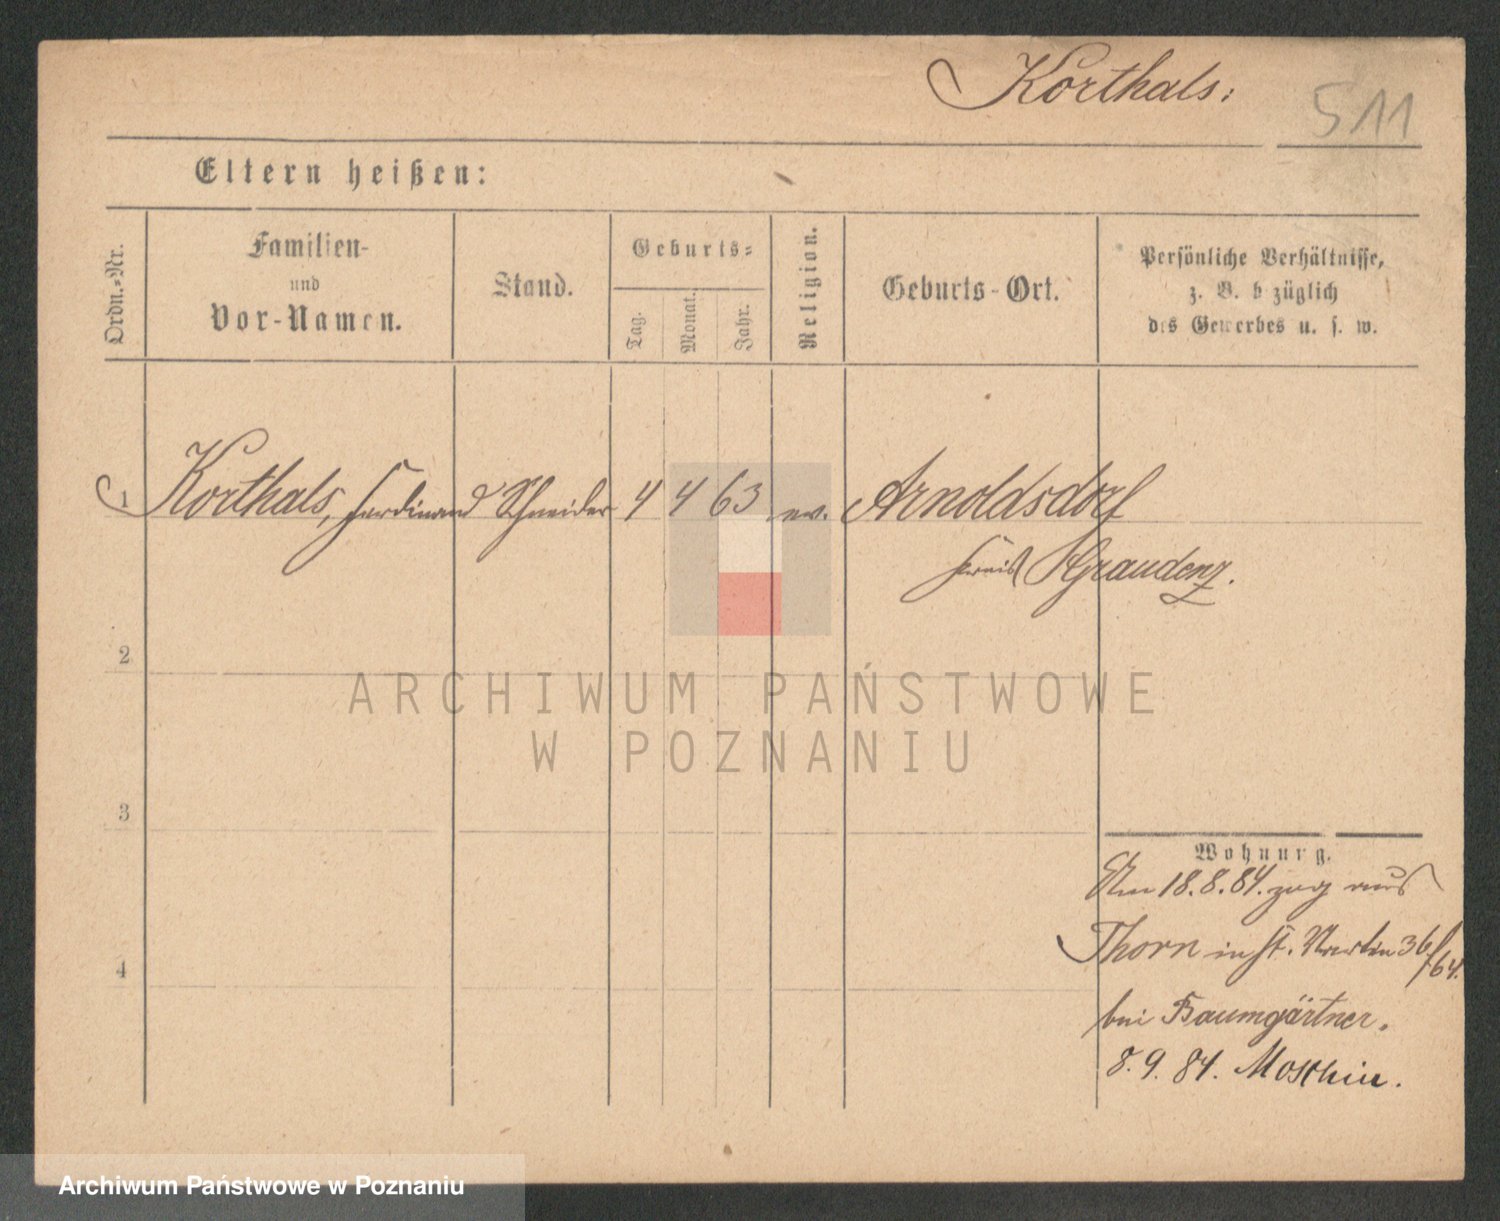 Korthals:
511
Eltern heißen:
Ordn.-Nr.
Familien-
und
Vor-Namen.
Stand.
Geburts-
Tag.
Monat.
Jahr.
Religion.
Geburts-Ort.
Persönliche Verhältnisse,
z. B. bezüglich
des Gewerbes u. s. w.
1 Korthals, Ferdinand Schneider 4 4 63 ev. Arnoldsdorf
Kreis Graudenz.
2
ARCHIWUM PAŃSTWOWE
W POZNANIU
3
Wohnung.
Am 18.8.84. zug aus
Thorn in St. Martin 36/64.
4
bei Baumgärtner.
8.9.84. Moschin.
Archiwum Państwowe w Poznaniu